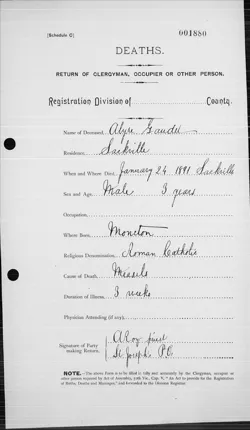 [Schedule C]
001880
DEATHS.
RETURN OF CLERGYMAN, OCCUPIER OR OTHER PERSON.
Registration Division of County.
Name of Deceased, Alyre Gaudet
Residence, Sackville
When and Where Died, January 24 1891 Sackville
Sex and Age, Male 3 years
Occupation,
Where Born, Moncton
Religious Denomination, Roman Catholic
Cause of Death, Measels
Duration of Illness, 3 weeks
Physician Attending (if any),
Signature of Party making Return, A Roy priest
St Joseph P.O.
NOTE.—The above Form is to be filled in and returned by the Clergyman, occupier or other person required by Act of Assembly, Cap. V, "An Act to provide for the Registration of Births, Deaths and Marriages," and forwarded to the Division Registrar.